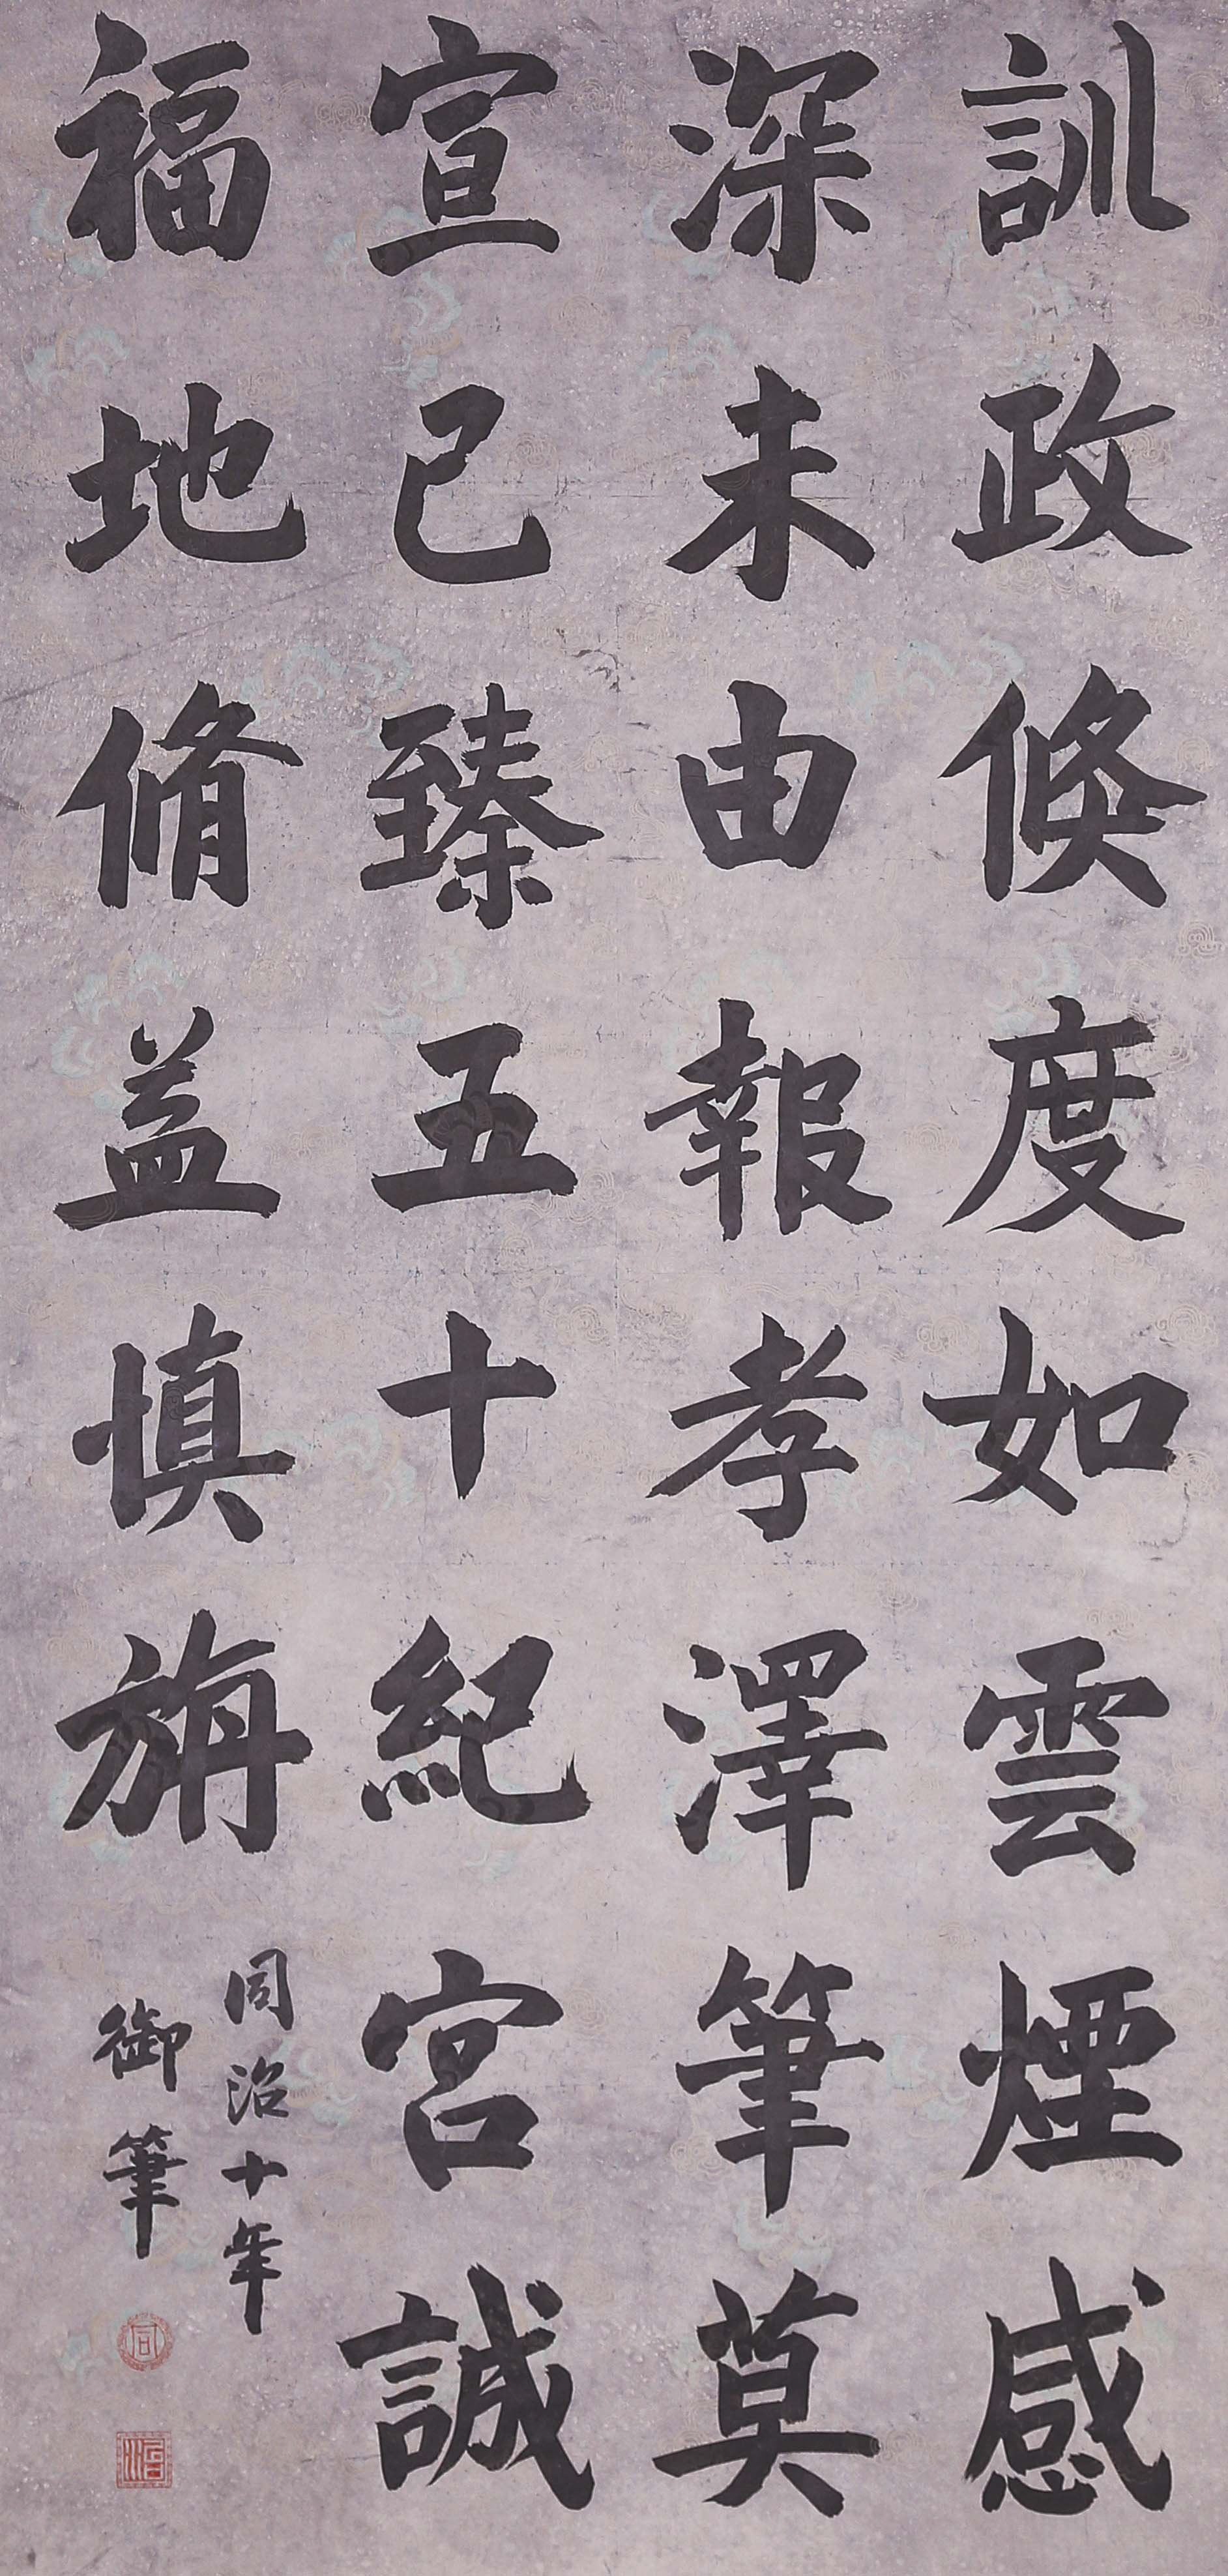 訓政倐度如雲煙感
深未由報孝澤筆莫
宣已臻五十紀宮誠
福地脩益慎旃
同治十年
御筆
同
治